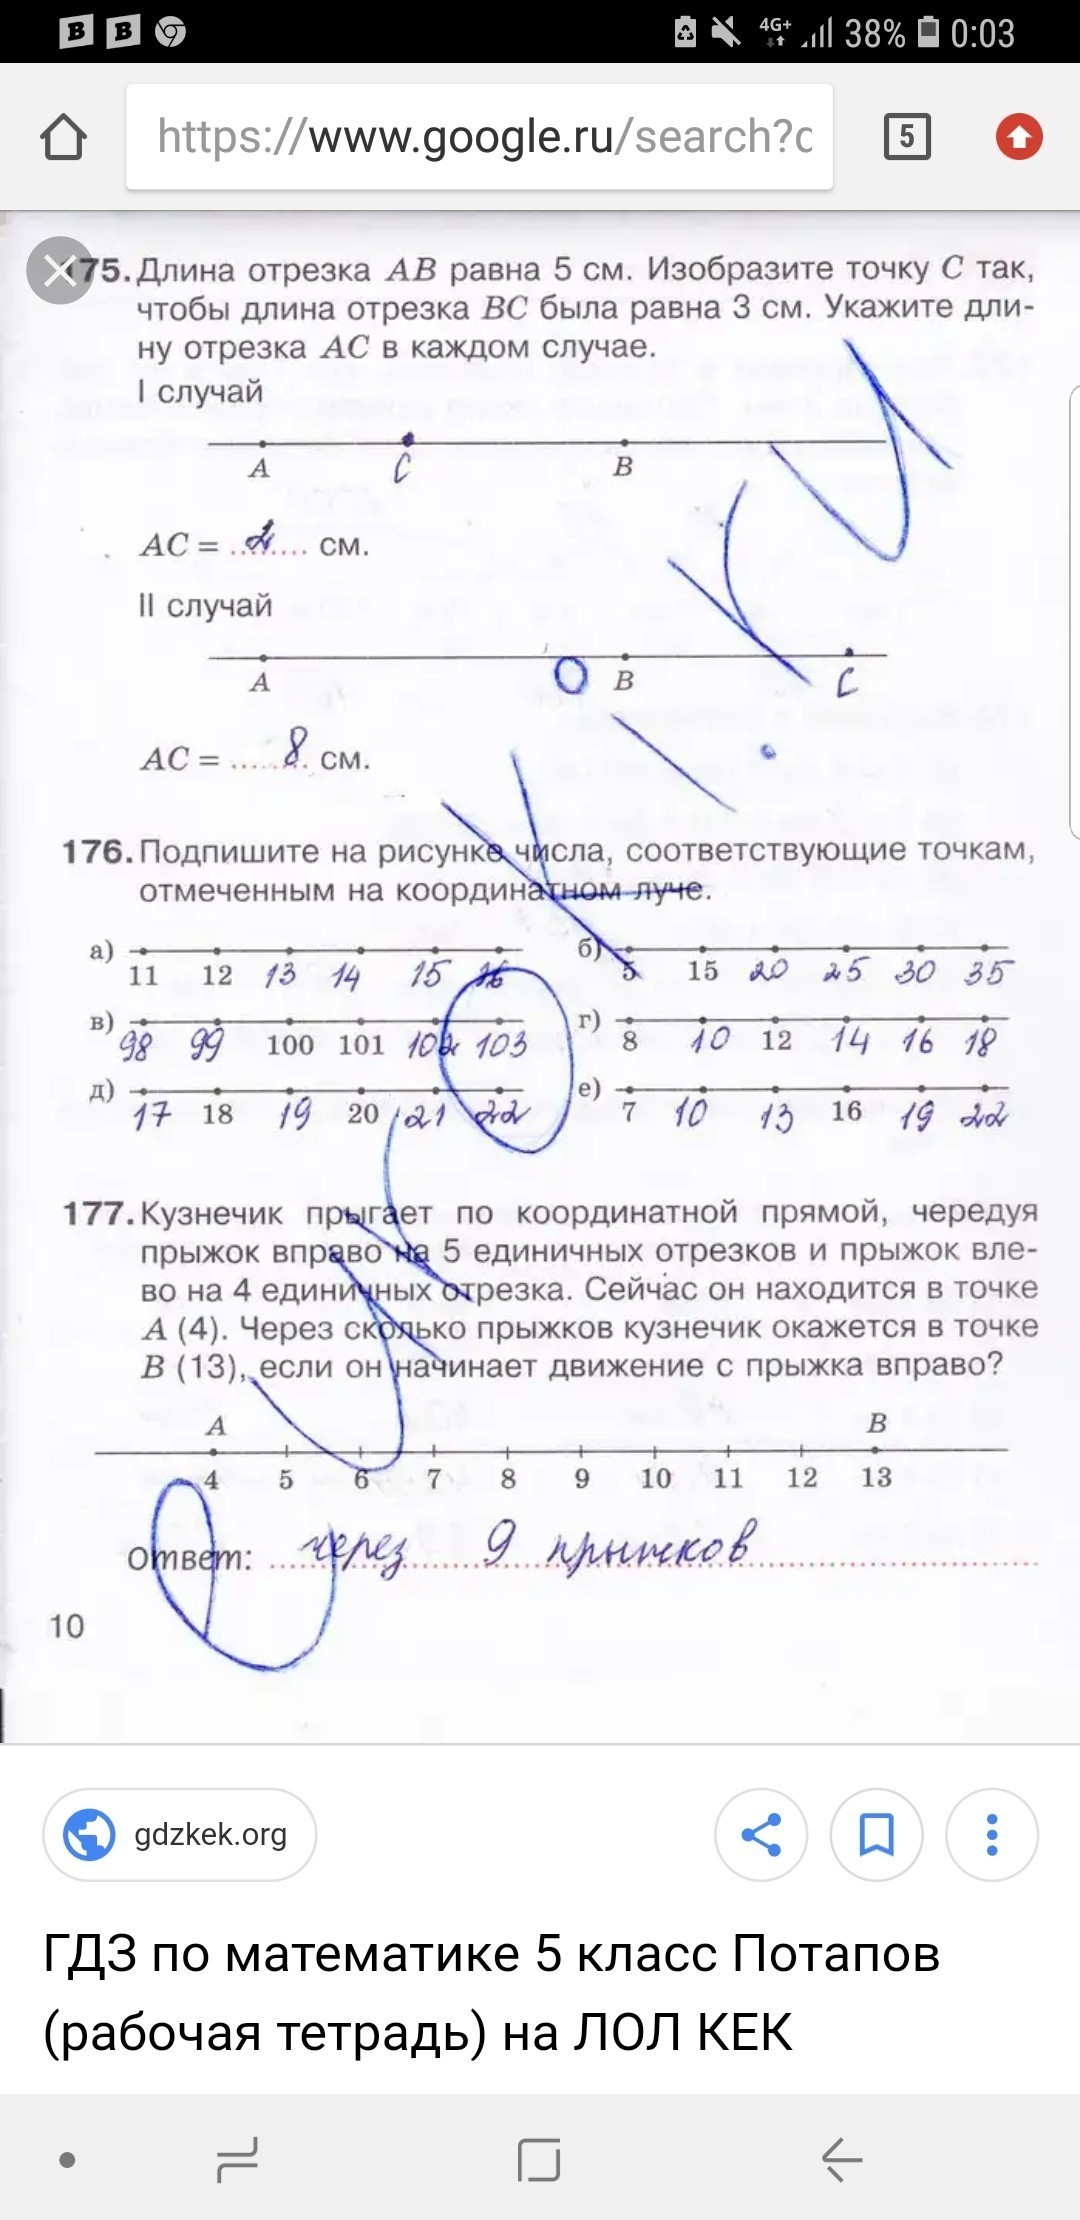 B B 4G+ 38% 0:03
https://www.google.ru/search?c 5
175. Длина отрезка AB равна 5 см. Изобразите точку C так,
чтобы длина отрезка BC была равна 3 см. Укажите дли-
ну отрезка AC в каждом случае.
I случай
A C B
AC = 2 см.
II случай
A B C
AC = 8 см.
176. Подпишите на рисунке числа, соответствующие точкам,
отмеченным на координатном луче.
а) 11 12 13 14 15 16
б) 5 15 20 25 30 35
в) 98 99 100 101 102 103
г) 8 10 12 14 16 18
д) 17 18 19 20 21 22
е) 7 10 13 16 19 22
177. Кузнечик прыгает по координатной прямой, чередуя
прыжок вправо на 5 единичных отрезков и прыжок вле-
во на 4 единичных отрезка. Сейчас он находится в точке
A (4). Через сколько прыжков кузнечик окажется в точке
B (13), если он начинает движение с прыжка вправо?
A B
4 5 6 7 8 9 10 11 12 13
Ответ: через 9 прыжков
10
gdzkek.org
ГДЗ по математике 5 класс Потапов
(рабочая тетрадь) на ЛОЛ КЕК